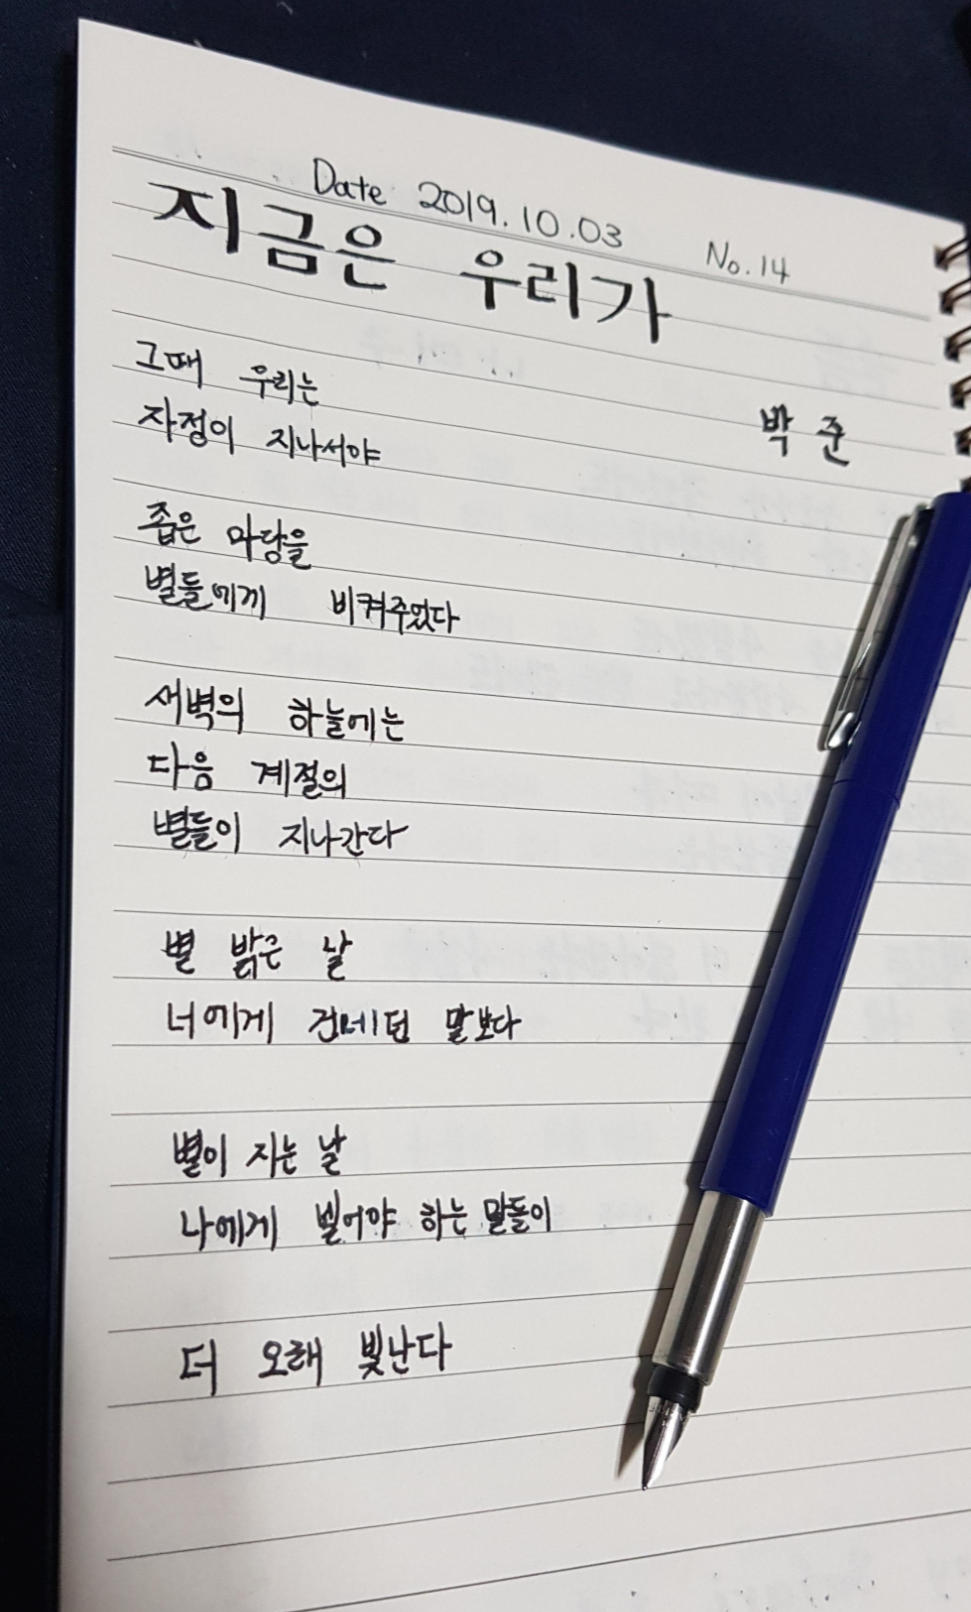 Date 2019.10.03 No.14
지금은 우리가
박 준
그때 우리는
자정이 지나서야
좁은 마당을
별들에게 비켜주었다
새벽의 하늘에는
다음 계절의
별들이 지나간다
별 밝은 날
너에게 건네던 말보다
별이 지는 날
나에게 빌어야 하는 말들이
더 오래 빛난다